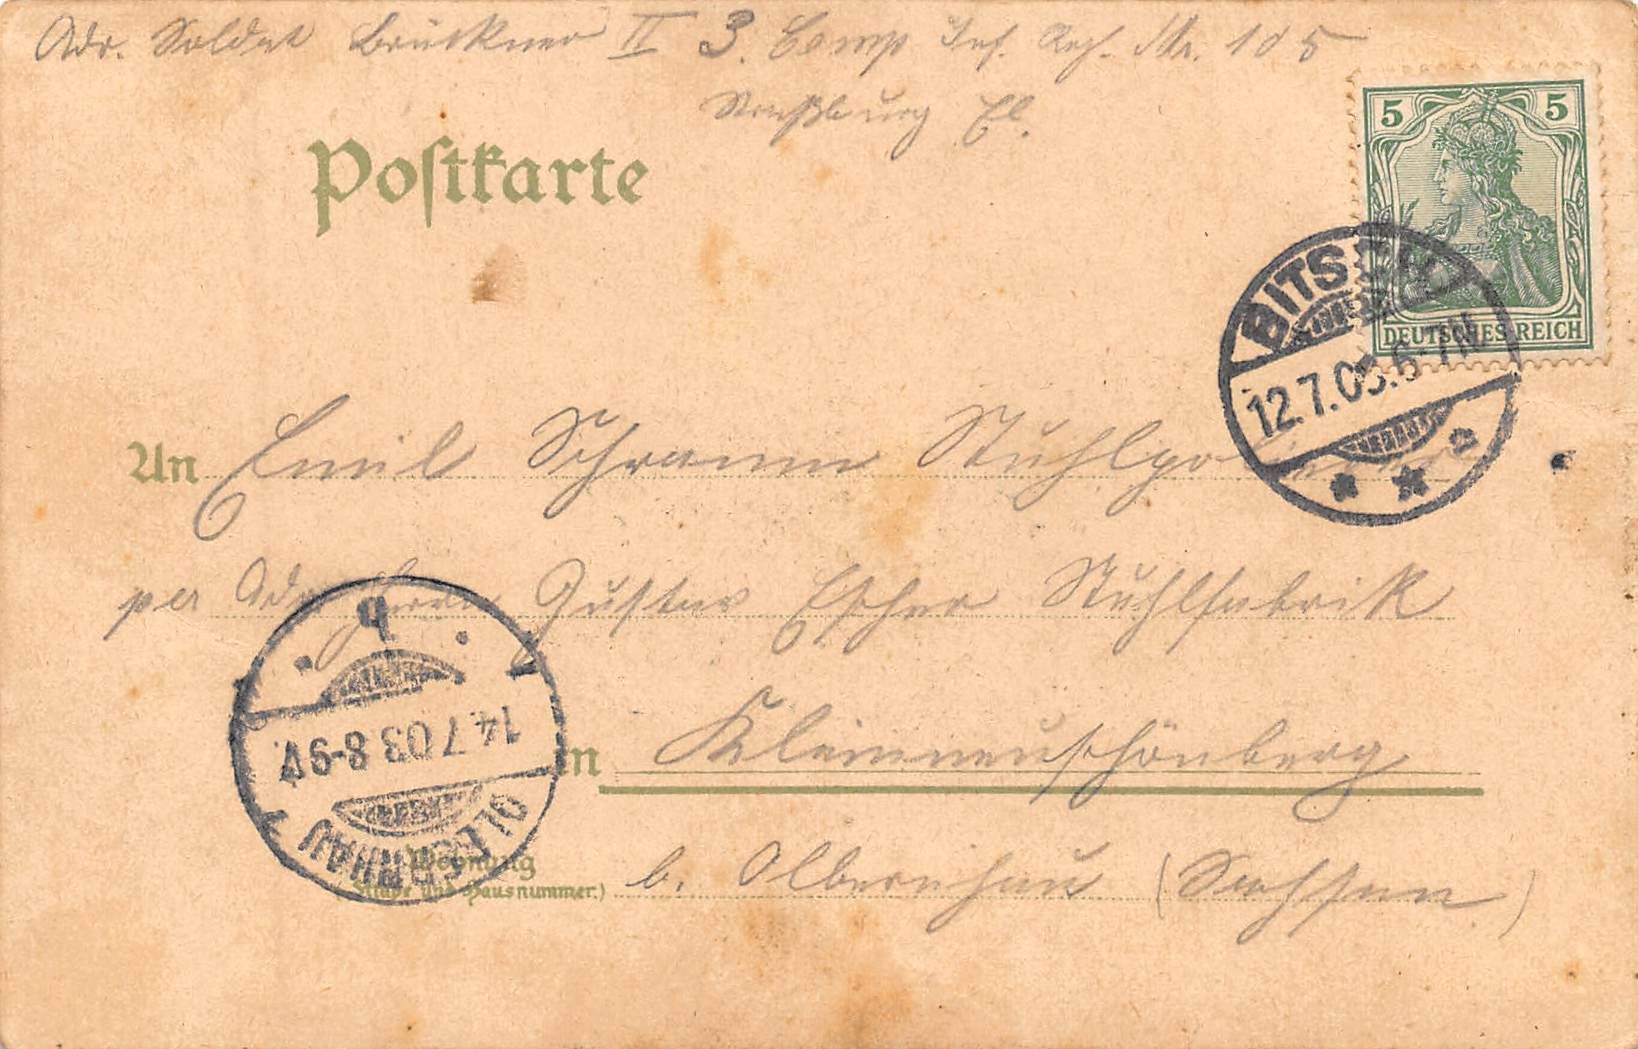 Adr. Soldat Brückner II 3. Comp Inf. Reg. Nr. 105
Straßburg El.
Postkarte
5 5
DEUTSCHES REICH
BITSCH
12.7.03.6-7N
An Emil Schramm
per Adr Herrn Gustav Escher Stuhlfabrik
in Kleinneuschönberg
14.7.03.8-9V.
OLBERNHAU
b
Wohnung
(Straße und Hausnummer.)
b. Olbernhau (Sachsen)